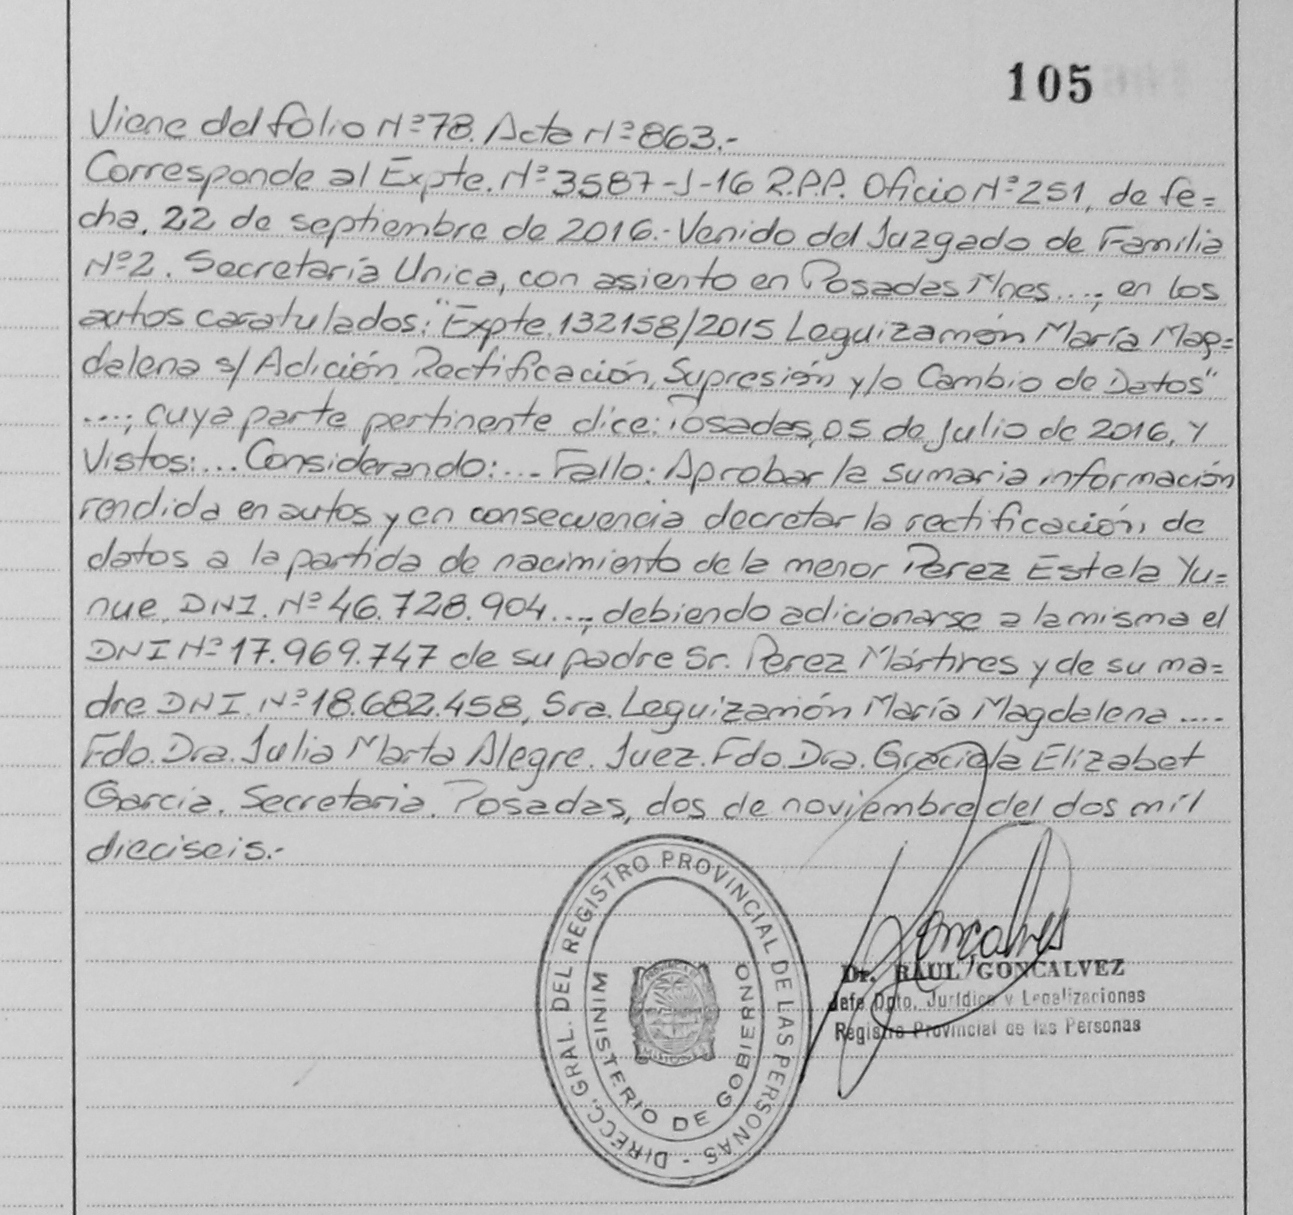 105
Viene del folio Nº 78. Acta Nº 863.-
Corresponde al Expte. Nº 3587-J-16 R.P.P. Oficio Nº 251, de fe=
cha, 22 de septiembre de 2016.- Venido del Juzgado de Familia
Nº 2. Secretaría Unica, con asiento en Posadas Mnes...; en los
autos caratulados: "Expte. 132158/2015 Leguizamón María Mag=
dalena s/ Adición Rectificación, Supresión y/o Cambio de Datos"
....; cuya parte pertinente dice: Posadas, 05 de Julio de 2016, Y
Vistos:... Considerando:... Fallo: Aprobar la sumaria información
rendida en autos y en consecuencia decretar la rectificación, de
datos a la partida de nacimiento de la menor Perez Estela Yu=
nue, DNI. Nº 46.728.904..., debiendo adicionarse a la misma el
DNI Nº 17.969.747 de su padre Sr. Perez Mártires y de su ma=
dre DNI. Nº 18.682.458, Sra. Leguizamón María Magdalena....
Fdo. Dra. Julia Marta Alegre. Juez. Fdo Dra. Graciela Elizabet
Garcia. Secretaria. Posadas, dos de noviembre del dos mil
dieciseis.-
DIRECC. GRAL. DEL REGISTRO PROVINCIAL DE LAS PERSONAS -
MINISTERIO DE GOBIERNO
MISIONES
Goncalves
Dr. RAUL GONCALVEZ
Jefe Dpto. Jurídico y Legalizaciones
Registro Provincial de las Personas